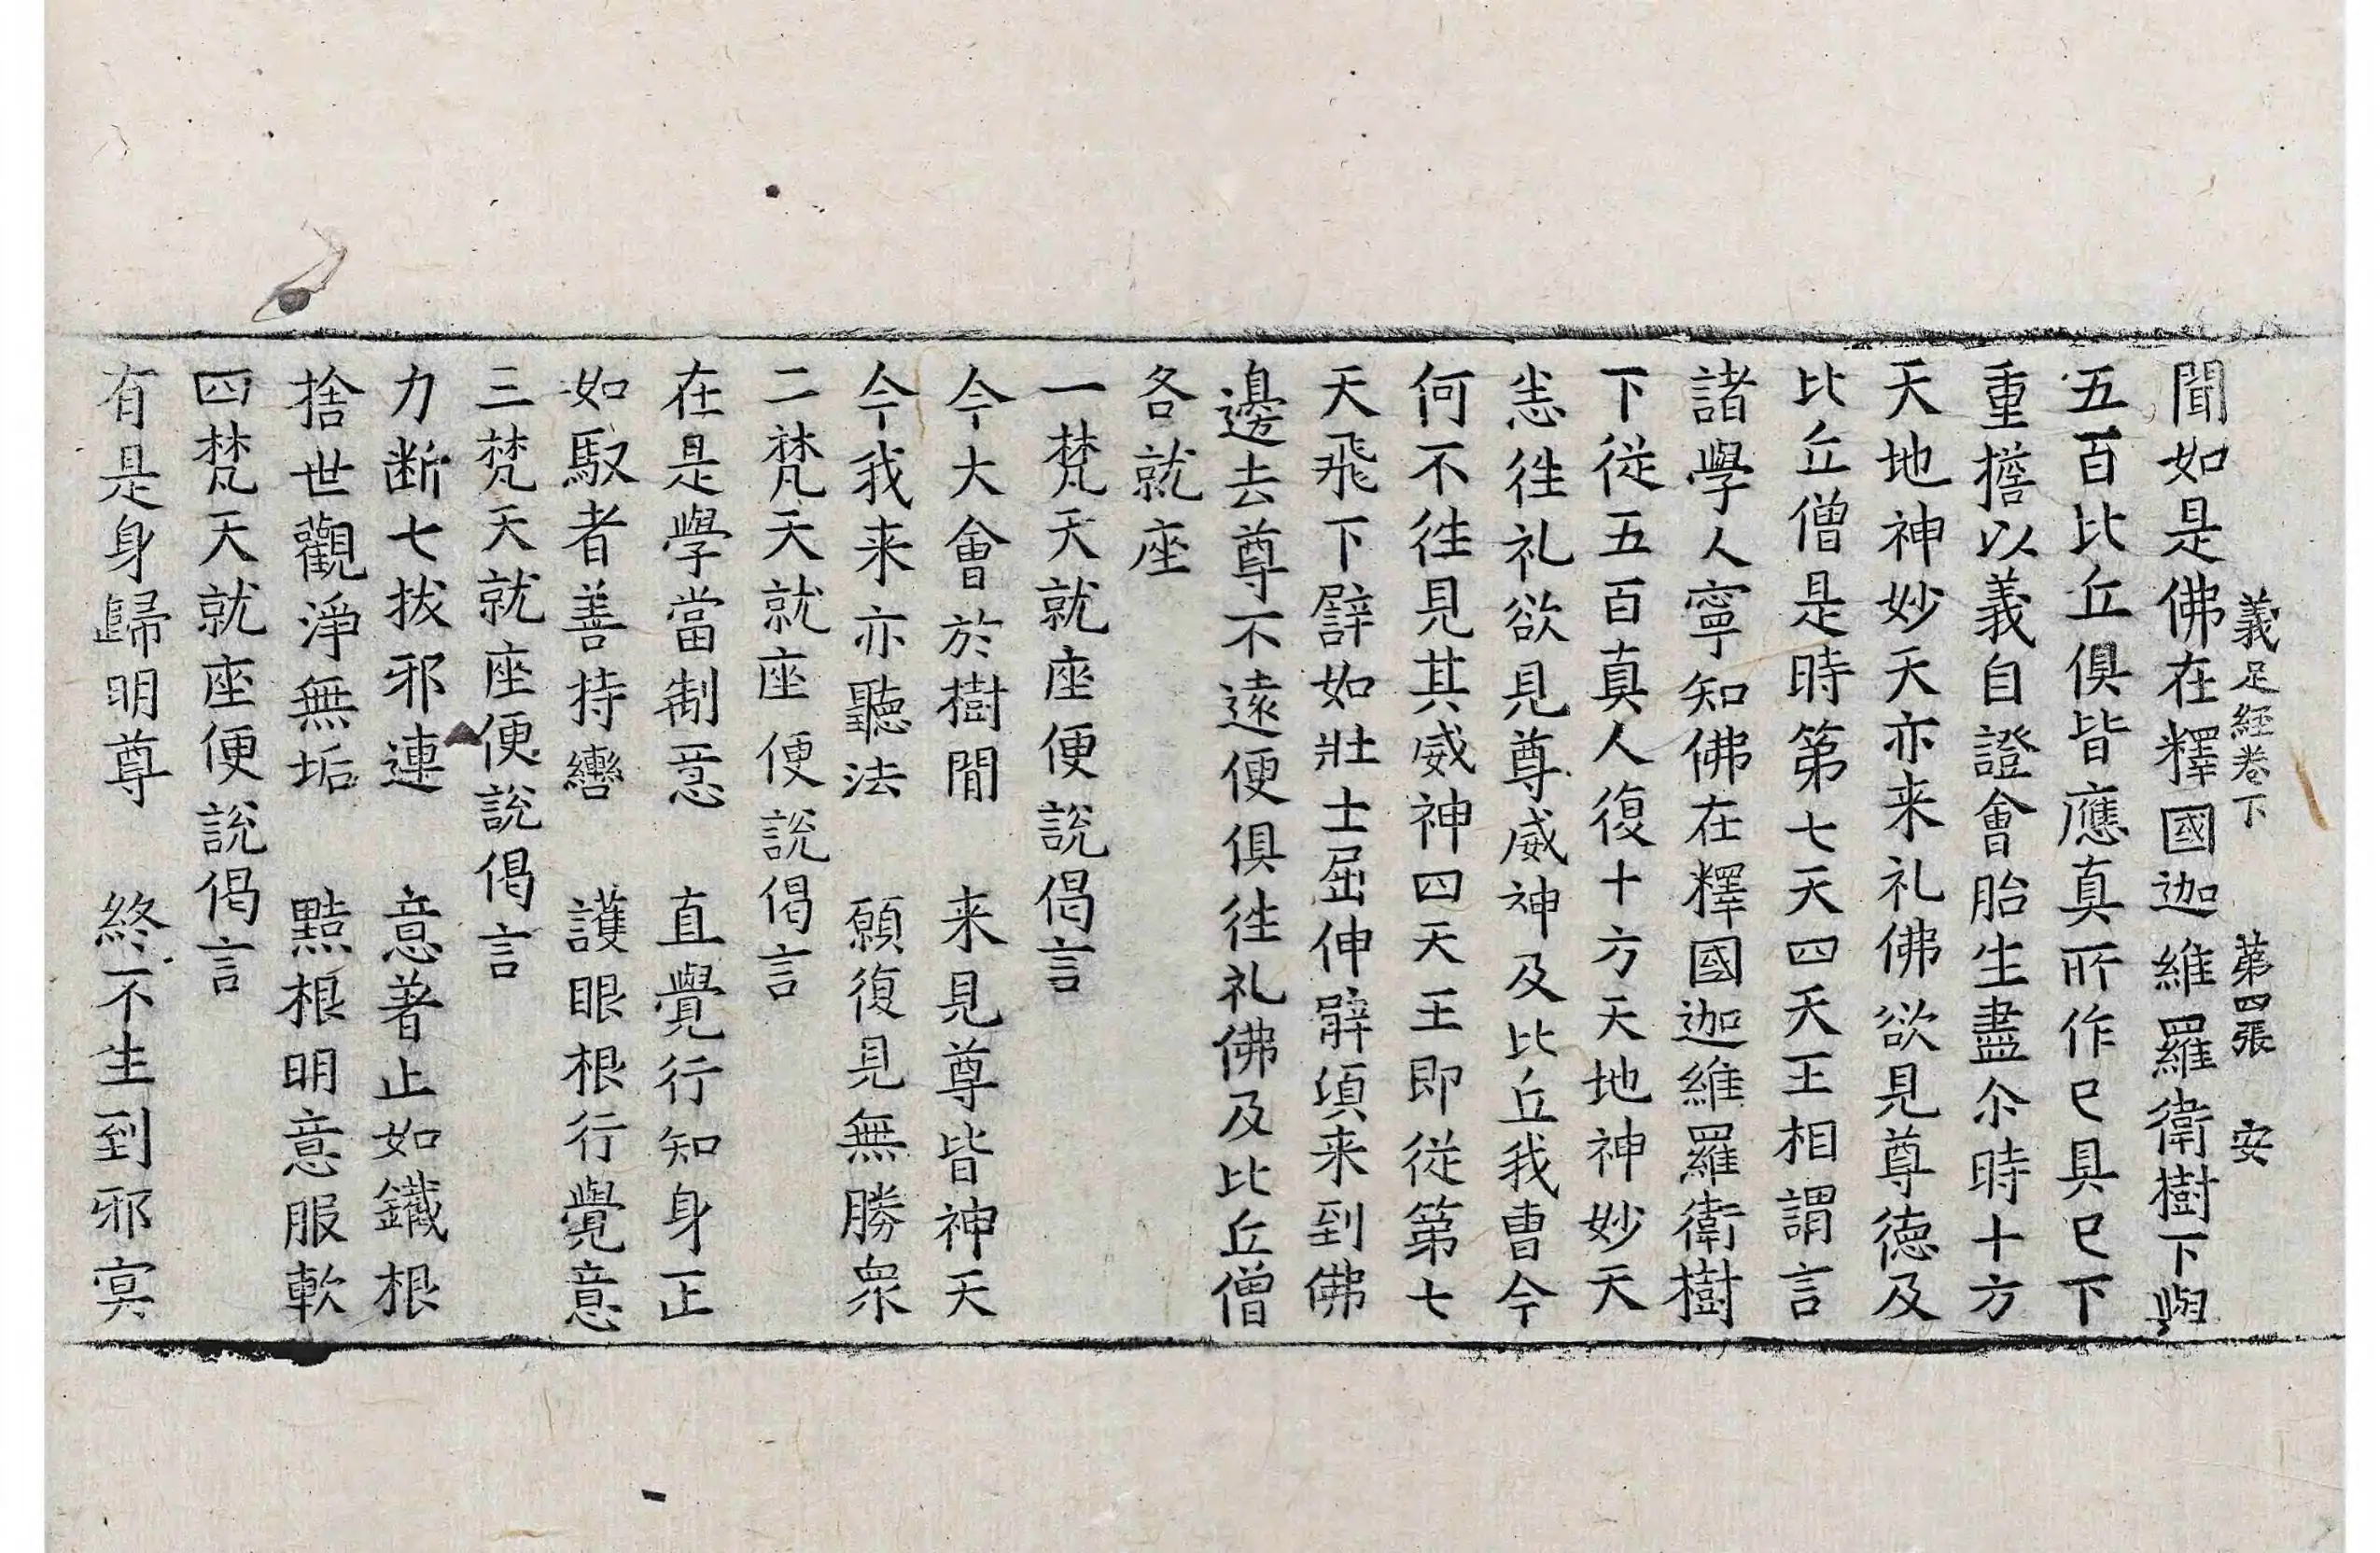 義足經卷下 苐四張 安
聞如是佛在釋國迦維羅衛樹下與
五百比丘俱皆應真所作已具已下
重擔以義自證會胎生盡尒時十方
天地神妙天亦来礼佛欲見尊德及
比丘僧是時第七天四天王相謂言
諸學人寧知佛在釋國迦維羅衛樹
下從五百真人復十方天地神妙天
悉徃礼欲見尊威神及比丘我曹今
何不徃見其威神四天王即從第七
天飛下譬如壯士屈伸臂頃来到佛
邊去尊不遠便俱徃礼佛及比丘僧
各就座
一梵天就座便說偈言
今大會於樹間 来見尊皆神天
今我来亦聽法 願復見無勝衆
二梵天就座便說偈言
在是學當制意 直覺行知身正
如馭者善持轡 護眼根行覺意
三梵天就座便說偈言
力断七拔邪連 意著止如鐵根
捨世觀淨無垢 黠根明意服軟
四梵天就座便說偈言
有是身歸明尊 終不生到邪冥